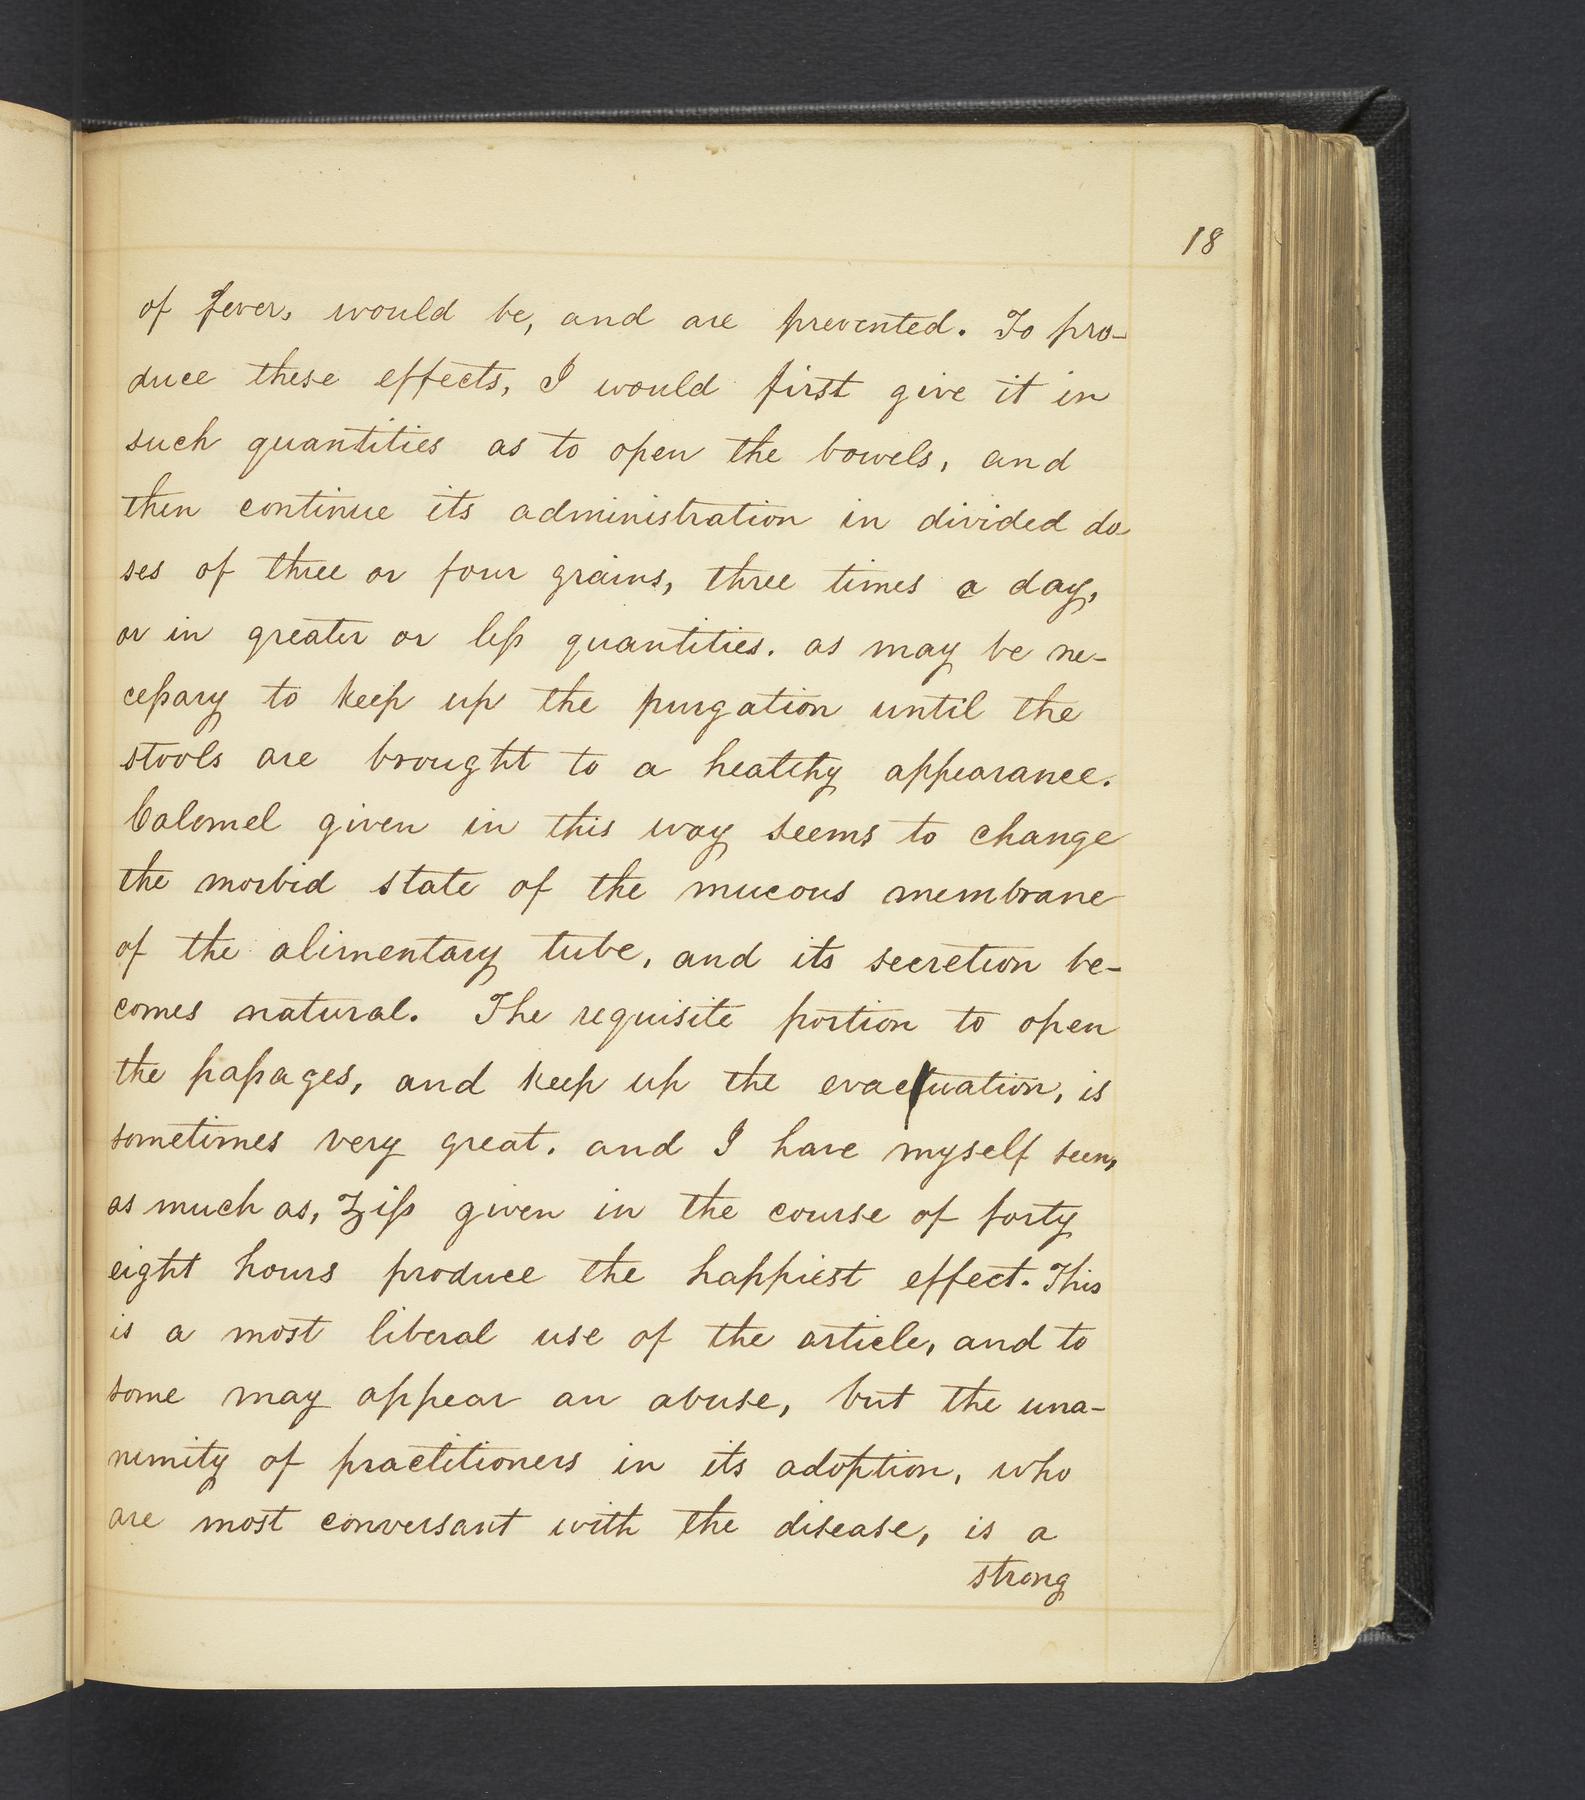 18
of fever, would be, and are prevented. To pro-
duce these effects, I would first give it in
such quantities as to open the bowels, and
then continue its administration in divided do-
ses of three or four grains, three times a day,
or in greater or leſs quantities. as may be ne-
ceſsary to keep up the purgation until the
stools are brought to a healthy appearance.
Calomel given in this way seems to change
the morbid state of the mucous membrane
of the alimentary tube, and its secretion be-
comes natural. The requisite portion to open
the paſsages, and keep up the evacuation, is
sometimes very great. and I have myself seen,
as much as, ʒiſs given in the course of forty
eight hours produce the happiest effect. This
is a most liberal use of the article, and to
some may appear an abuse, but the una-
nimity of practitioners in its adoption, who
are most conversant with the disease, is a
strong